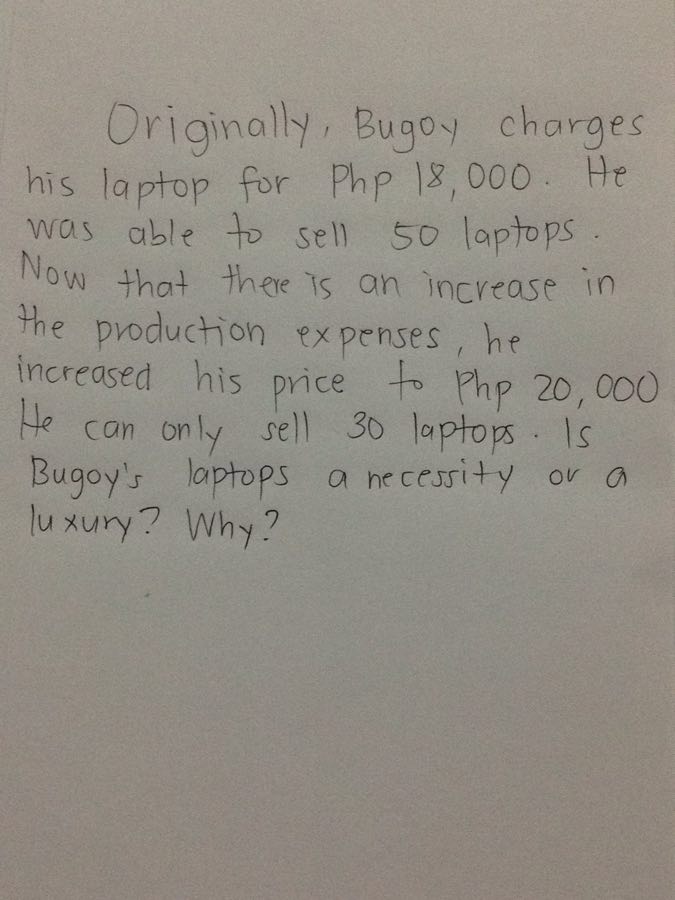 Originally, Bugoy charges
his laptop for Php 18,000. He
was able to sell 50 laptops.
Now that there is an increase in
the production expenses, he
increased his price to Php 20,000
He can only sell 30 laptops. Is
Bugoy's laptops a necessity or a
luxury? Why?